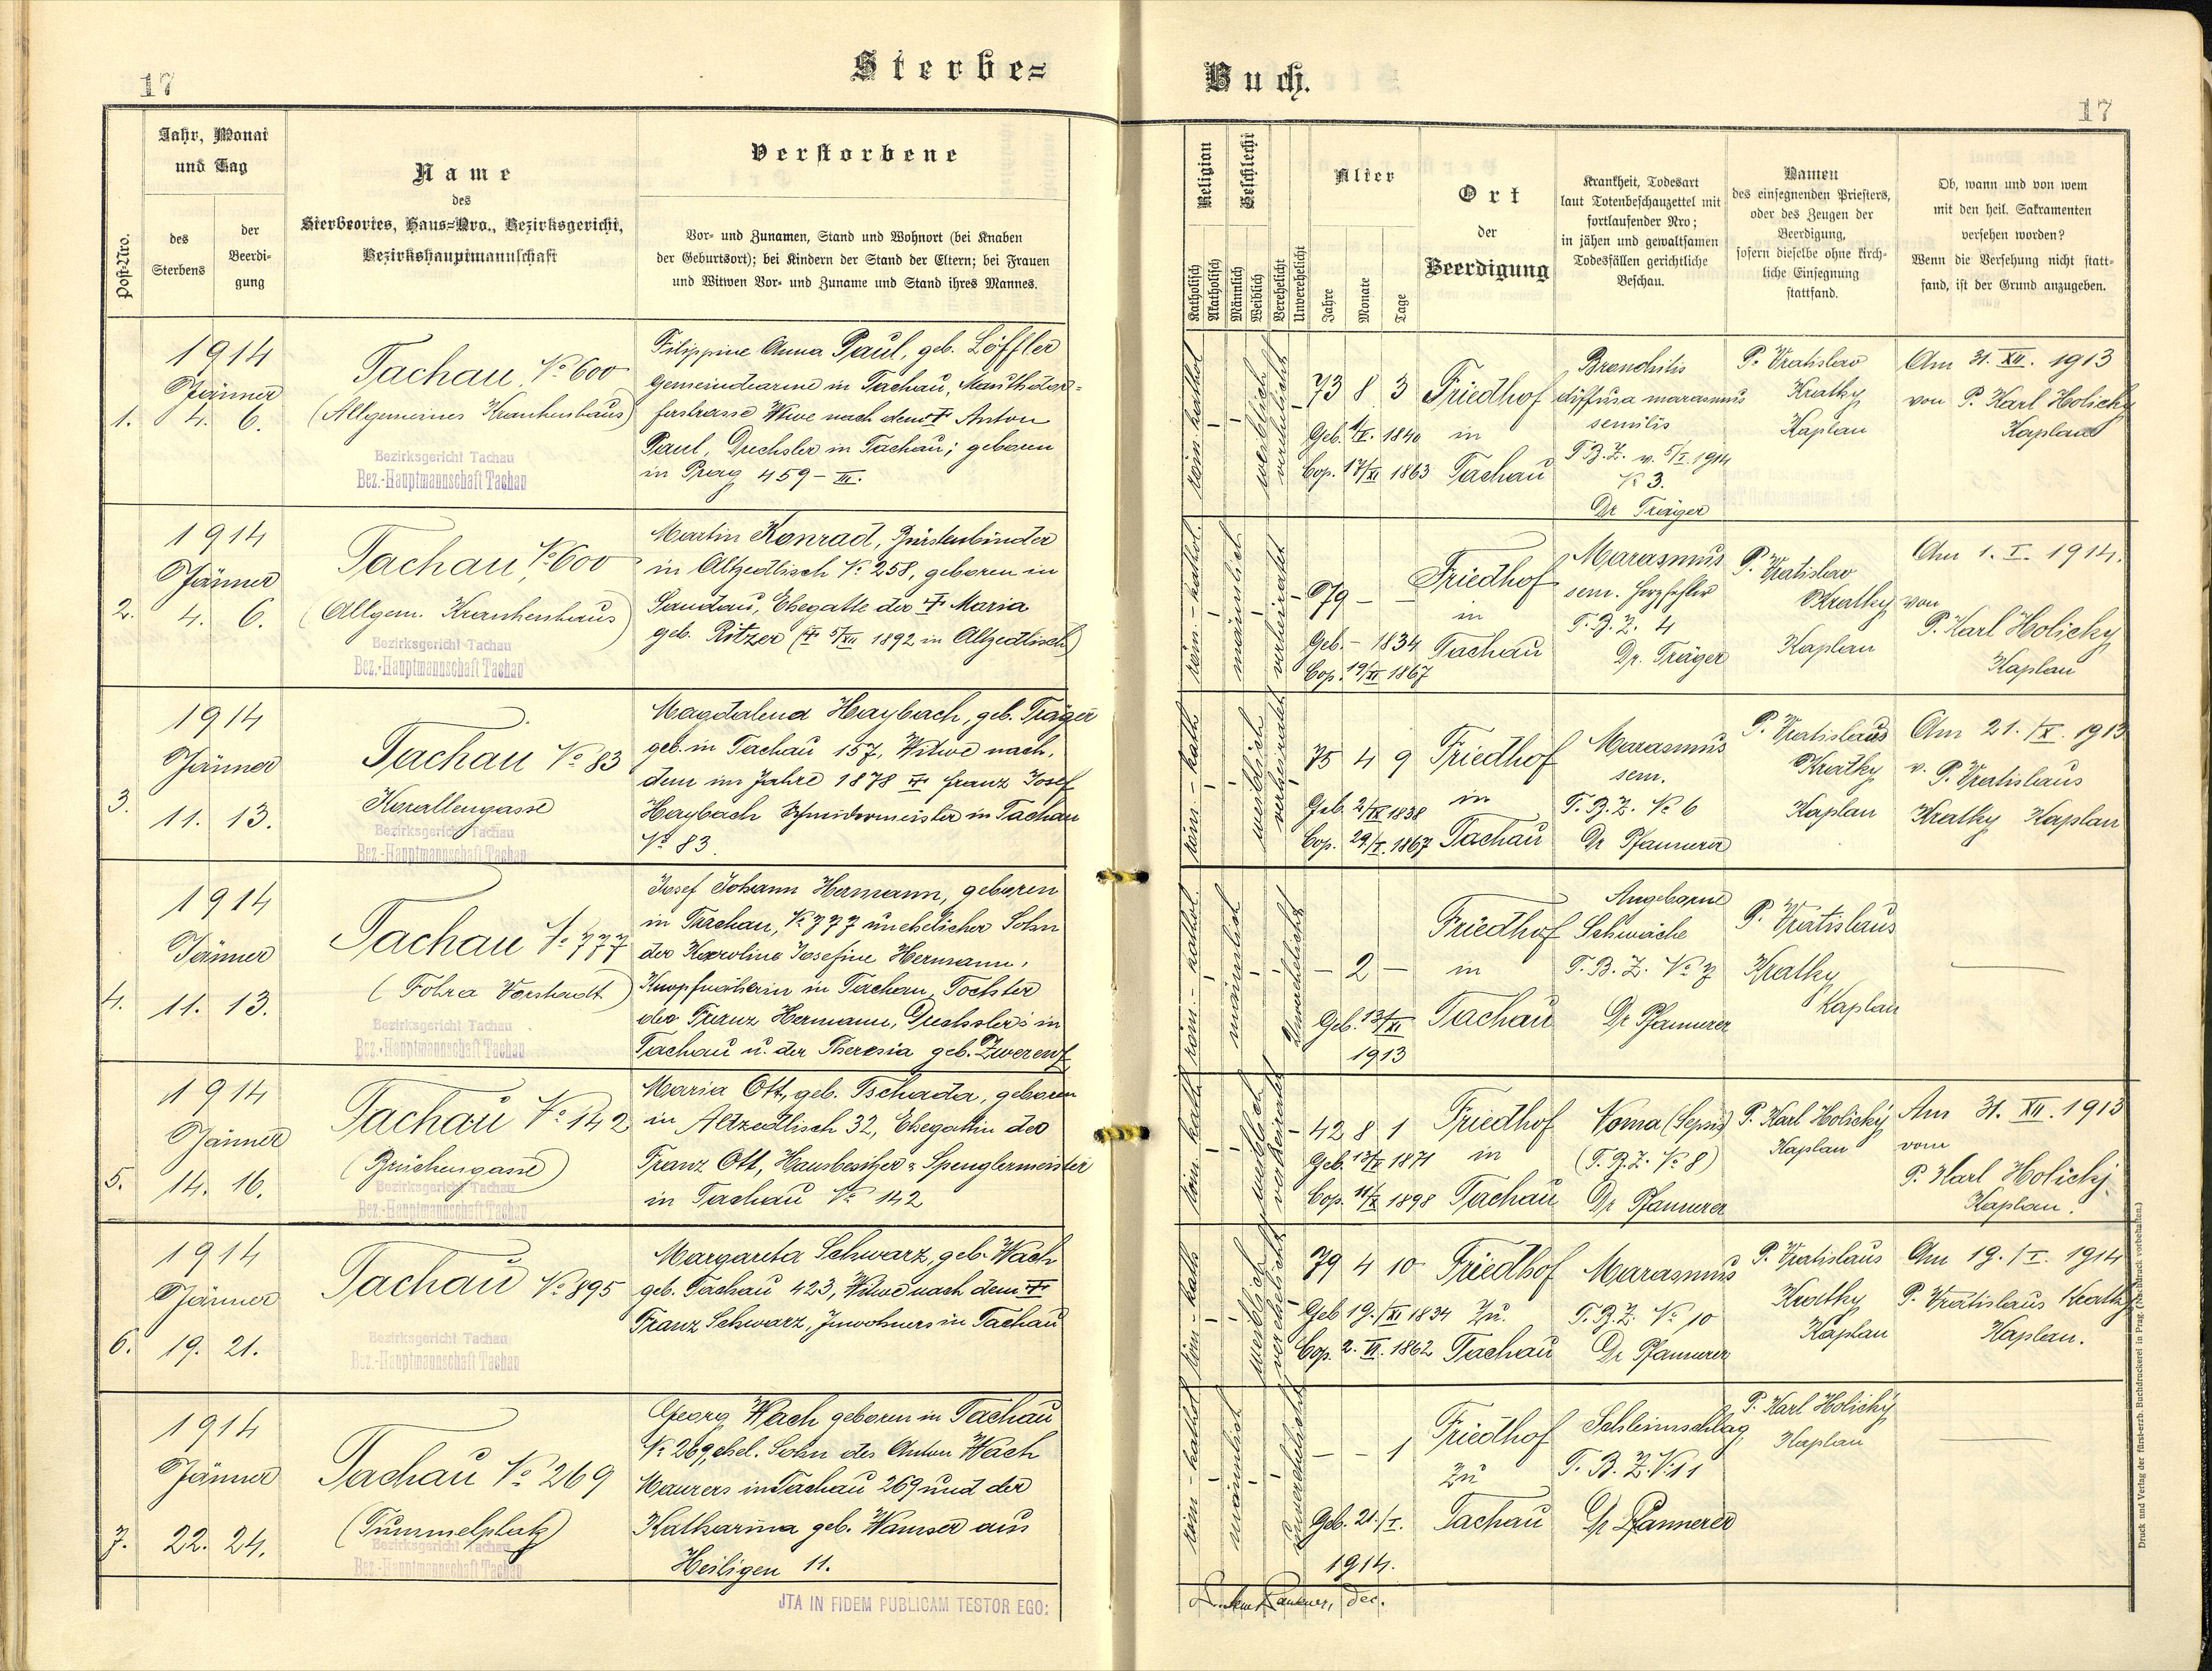 17
Sterbe=
Post-Nro.
Jahr, Monat
und Tag
des
Sterbens
der
Beerdi-
gung
Name
des
Sterbeortes, Haus=Nro., Bezirksgericht,
Bezirkshauptmannschaft
Verstorbene
Vor- und Zunamen, Stand und Wohnort (bei Knaben
der Geburtsort); bei Kindern der Stand der Eltern; bei Frauen
und Witwen Vor- und Zuname und Stand ihres Mannes.
1.
1914
Jänner
4. 6.
Tachau, No 600
(Allgemeines Krankenhaus)
Bezirksgericht Tachau
Bez.-Hauptmannschaft Tachau
Filippine Anna Paul, geb. Löffler
Gemeindearme in Tachau,
Witwe nach dem † Anton
Paul, Drechsler in Tachau; geboren
in Prag 459 - III.
2.
1914
Jänner
4. 6.
Tachau, No 600
(Allgem. Krankenhaus)
Bezirksgericht Tachau
Bez.-Hauptmannschaft Tachau
Martin Konrad, Bürstenbinder
in Altzedlisch No 258, geboren in
Sandau, Ehegatte der † Maria
geb. Ritzer († 5/XII 1892 in Altzedlisch)
3.
1914
Jänner
11. 13.
Tachau No 83
Korallengasse
Bezirksgericht Tachau
Bez.-Hauptmannschaft Tachau
Magdalena Haybach, geb. Träger
geb. in Tachau 157, Witwe nach
dem im Jahre 1878 † Franz Josef
Haybach Schneidermeister in Tachau
No 83
4.
1914
Jänner
11. 13.
Tachau No 777
(Fohra Vorstadt)
Bezirksgericht Tachau
Bez.-Hauptmannschaft Tachau
Josef Johann Hermann, geboren
in Tachau, No 777 unehelicher Sohn
der Karolina Josefine Hermann,
Knopfnäherin in Tachau, Tochter
des Franz Hermann, Drechslers in
Tachau u. der Theresia geb. Zwerenz
5.
1914
Jänner
14. 16.
Tachau No 142
(Brückengasse)
Bezirksgericht Tachau
Bez.-Hauptmannschaft Tachau
Maria Ott, geb. Tschada, geboren
in Altzedlisch 32, Ehegattin des
Franz Ott, Hausbesitzer u. Spenglermeister
in Tachau No 142
6.
1914
Jänner
19. 21.
Tachau No 895
Bezirksgericht Tachau
Bez.-Hauptmannschaft Tachau
Margareta Schwarz, geb. Wach
geb. Tachau 423, Witwe nach dem †
Franz Schwarz, Inwohners in Tachau
7.
1914
Jänner
22. 24.
Tachau No 269
(Tummelplatz)
Bezirksgericht Tachau
Bez.-Hauptmannschaft Tachau
Georg Wach geboren in Tachau
No 269, ehel. Sohn des Anton Wach
Maurers in Tachau 269 und der
Katharina geb. Wamser aus
Heiligen 11.
JTA IN FIDEM PUBLICAM TESTOR EGO:
Buch.
17
Religion
Katholisch
Akatholisch
Geschlecht
Männlich
Weiblich
Verehelicht
Unverehelicht
Alter
Jahre
Monate
Tage
Ort
der
Beerdigung
Krankheit, Todesart
laut Totenbeschauzettel mit
fortlaufender Nro;
in jähen und gewaltsamen
Todesfällen gerichtliche
Beschau.
Namen
des einsegnenden Priesters,
oder des Zeugen der
Beerdigung,
sofern dieselbe ohne kirch-
liche Einsegnung
stattfand.
Ob, wann und von wem
mit den heil. Sakramenten
versehen worden?
Wenn die Versehung nicht statt-
fand, ist der Grund anzugeben.
röm. kathol.
weiblich
verehelicht
73 8 3
Geb. 1/V. 1840
Cop. 17/XI 1863
Friedhof
in
Tachau
Bronchitis
diffusa marasmus
senilis
T.B.Z. v. 5/I. 1914
No 3.
Dr Träger
P. Vratislav
Kratky
Kaplan
Am 31. XII. 1913
von P. Karl Holicky
Kaplan
röm. - kathol.
männlich
verheiratet
79 - -
Geb. - 1834
Cop. 19/XI 1867
Friedhof
in
Tachau
Marasmus
sen. Herzfehler
T.B.Z. 4
Dr. Träger
P. Vratislav
Kratky
Kaplan
Am 1. I. 1914.
von
P. Karl Holicky
Kaplan
röm. - kath.
weiblich
verheiratet
75 4 9
Geb. 2/IX 1838
Cop. 29/I. 1867
Friedhof
in
Tachau
Marasmus
sen.
T.B.Z. No 6
Dr Pfannerer
P. Vratislaus
Kratky
Kaplan
Am 21./X. 1913
v. P. Vratislaus
Kratky Kaplan
röm. - kathol.
männlich
Unverehelicht
- 2 -
Geb. 13/XI
1913
Friedhof
in
Tachau
Angeborne
Schwäche
T.B.Z. No 7
Dr Pfannerer
P. Vratislaus
Kratky
Kaplan
röm. kath.
weiblich
verheiratet
42 8 1
Geb. 13/V 1871
Cop. 11/X 1898
Friedhof
in
Tachau
Noma (Sepsis)
(T.B.Z. No 8)
Dr Pfannerer
P. Karl Holický
Kaplan
Am 31. XII. 1913
vom
P. Karl Holický
Kaplan.
röm - kath.
weiblich
verehelicht
79 4 10
Geb. 19./XI 1834
Cop. 2. VI. 1862
Friedhof
zu
Tachau
Marasmus
T.B.Z. No 10
Dr Pfannerer
P. Vratislaus
Kratky
Kaplan
Am 19./I. 1914
P. Vratislaus Kratky
Kaplan.
röm - kathol.
männlich
unverehelicht
- - 1
Geb. 21./I.
1914.
Friedhof
zu
Tachau
Schleimschlag
T.B.Z. No 11
Dr Pfannerer
P. Karl Holický
Kaplan
dec.
Druck und Verlag der fürst-erzb. Buchdruckerei in Prag. (Nachdruck vorbehalten.)